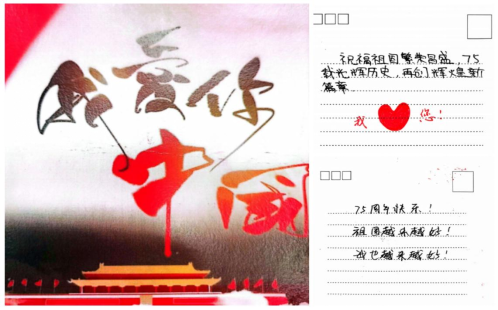 我爱你
中国
祝福祖国繁荣昌盛，75
载光辉历史，再创辉煌新
篇章。
我 您！
75周年快乐！
祖国越来越好！
我也越来越好！